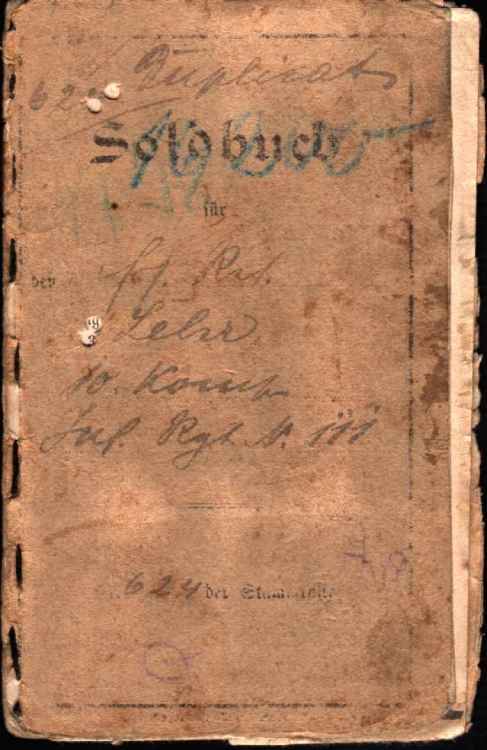 Duplicat
62
Soldbuch
für
den
Lehr
10. Komp.
Inf. Rgt. N. 111
624 der Stammrolle